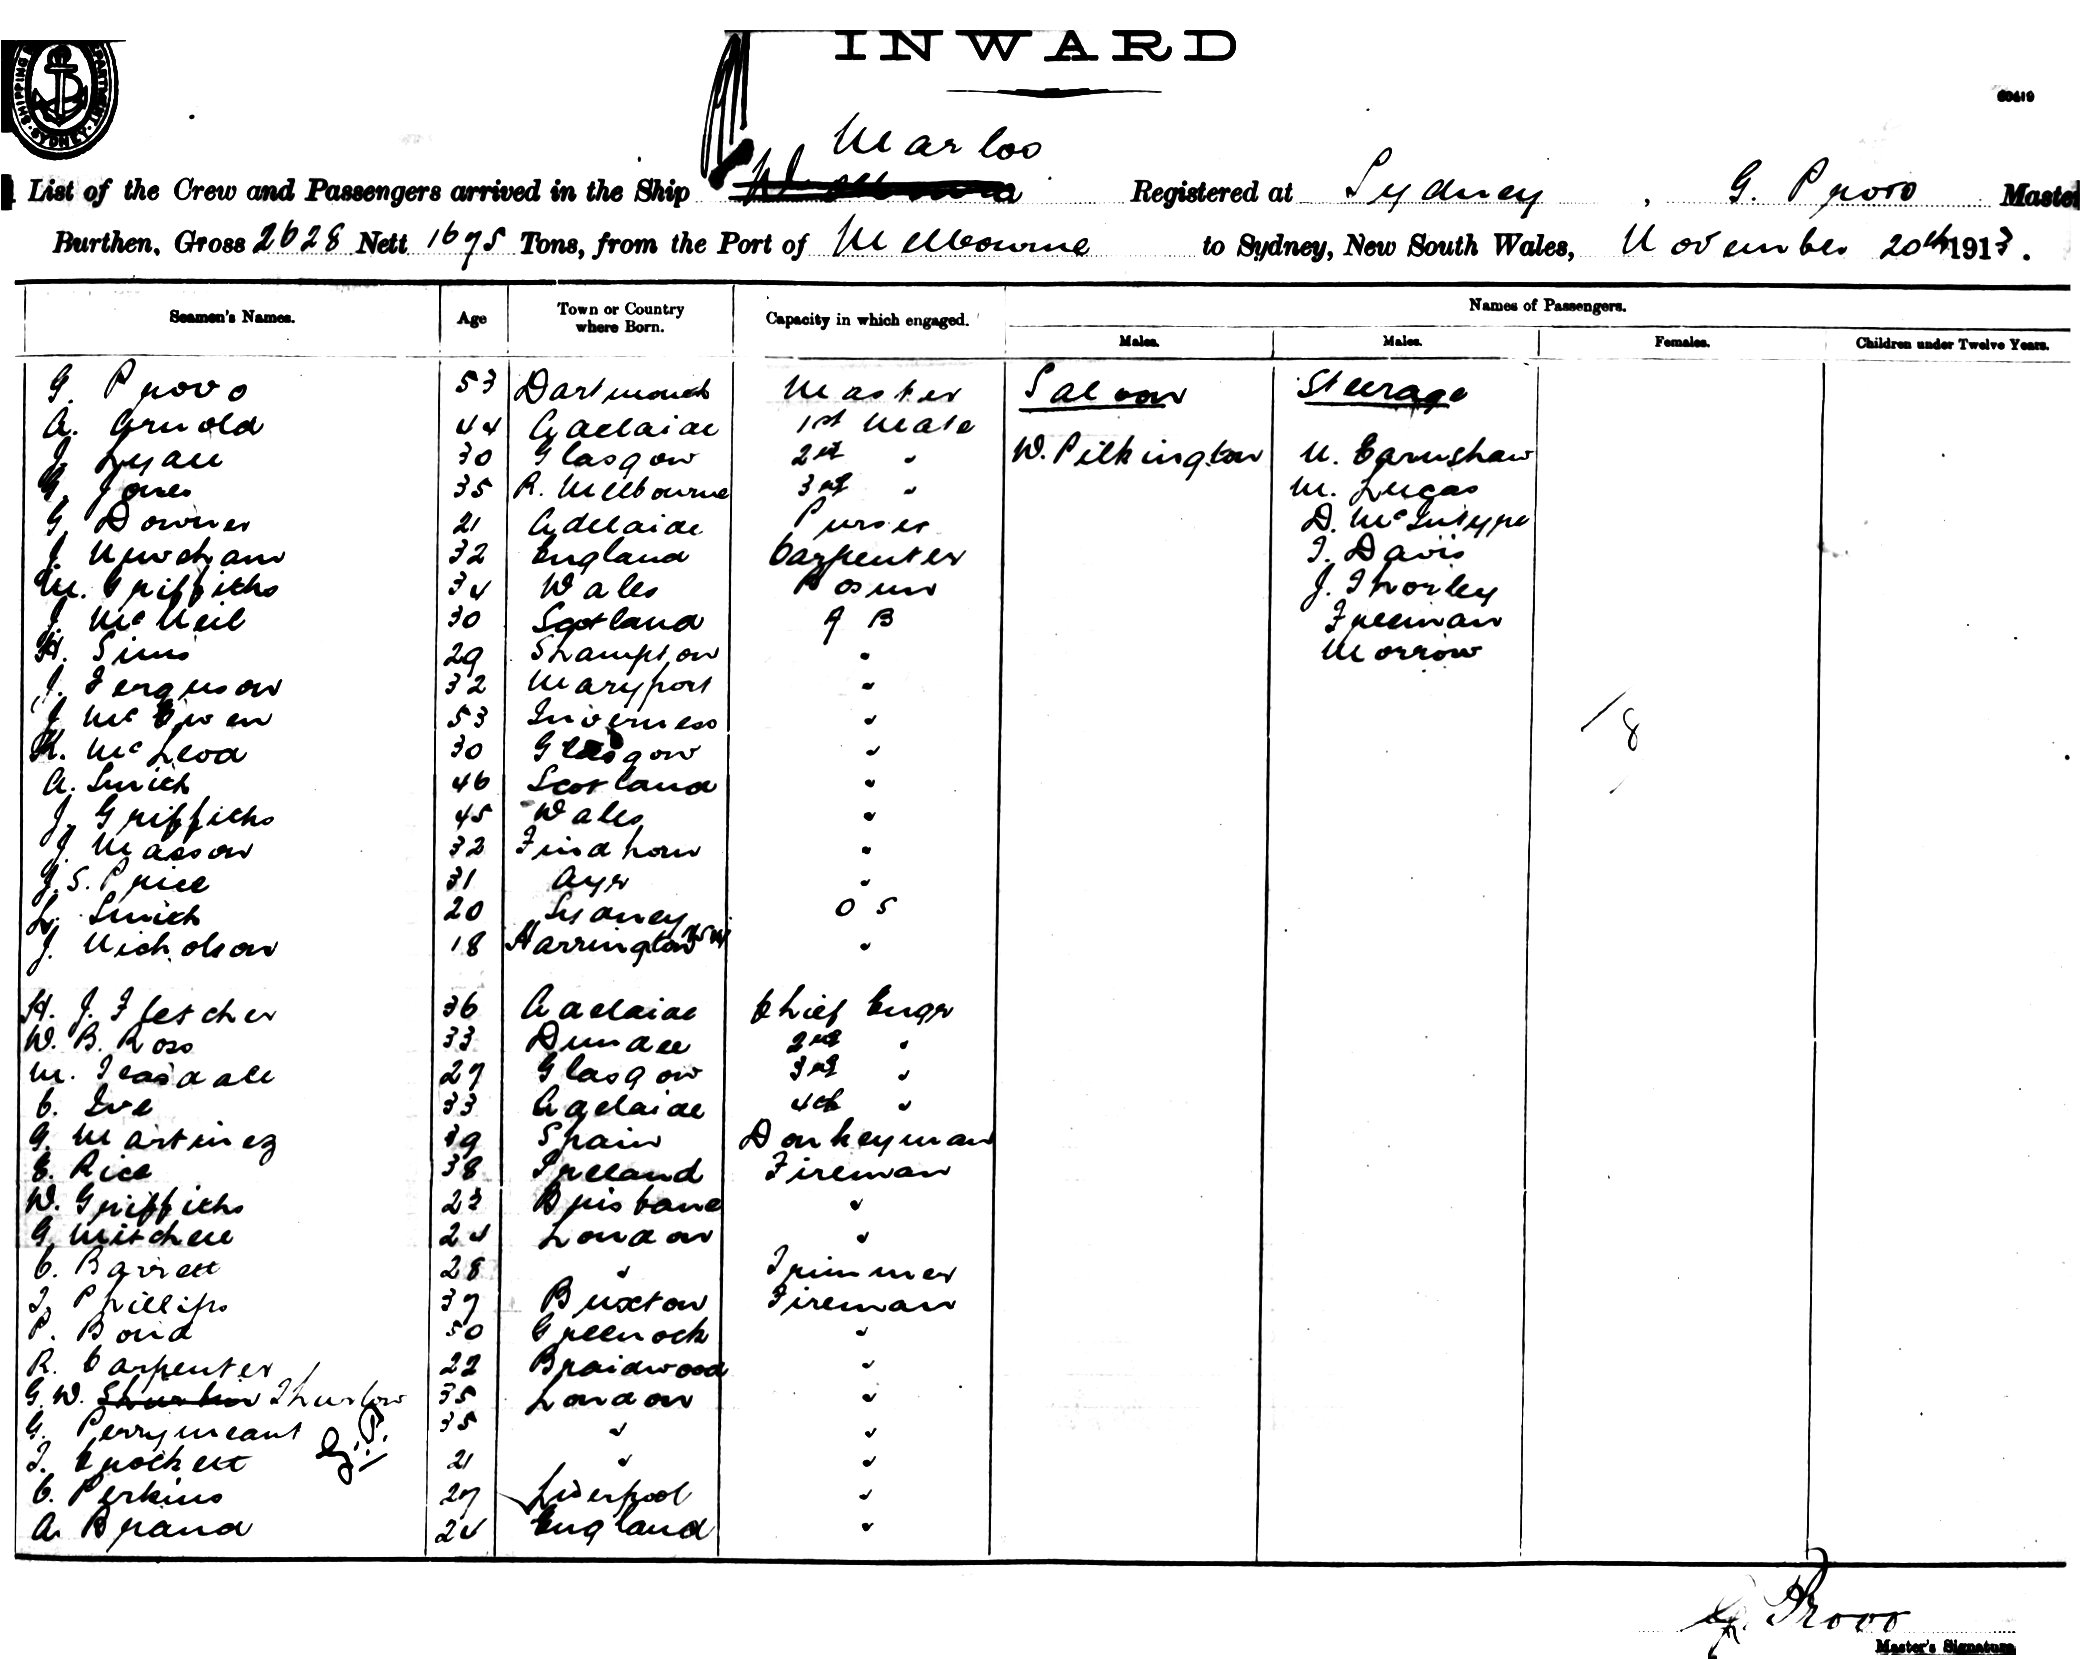 INWARD
60419
SHIPPING DEPARTMENT SYDNEY
Marloo
List of the Crew and Passengers arrived in the Ship Registered at Sydney, G. Provo Master
Burthen, Gross 2628 Nett 1675 Tons, from the Port of Melbourne to Sydney, New South Wales, November 20th 1913.
Seamen's Names. Age Town or Country where Born. Capacity in which engaged. Names of Passengers.
Males. Males. Females. Children under Twelve Years.
G. Provo 53 Dartmouth Master Saloon Steerage
A. Arnold 44 Adelaide 1st Mate
J. Lyall 30 Glasgow 2nd " W. Pilkington M. Earnshaw
G. Jones 35 R. Melbourne 3rd " M. Lucas
G. Downer 21 Adelaide Purser D. McIntyre
J. Newcham 32 England Carpenter T. Davis
M. Griffiths 34 Wales Bosun J. Thorley
J. McNeil 30 Scotland A B Freeman
H. Sims 29 Shampton " Morrow
J. Ferguson 32 Maryport "
J. McEwen 53 Inverness " 8
K. McLeod 30 Glasgow "
A. Smith 46 Scotland "
J. Griffiths 45 Wales "
J. Masson 32 Findhorn "
J. S. Price 31 Ayr "
L. Smith 20 Sydney O S
J. Nicholson 18 Harrington NSW "
H. J. Fletcher 36 Adelaide Chief Engr
W. B. Ross 33 Dundee 2nd "
M. Teasdale 27 Glasgow 3rd "
C. Ive 33 Adelaide 4th "
G. Martinez 39 Spain Donkeyman
E. Rice 38 Ireland Fireman
W. Griffiths 23 Brisbane "
G. Mitchell 24 London "
C. Barrett 28 " Trimmer
T. Phillips 37 Buxton Fireman
P. Bond 50 Greenock "
R. Carpenter 22 Braidwood "
G. W. Thurlow 35 London "
G. Perrymeant 35 " "
G. P.
T. Crockett 21 " "
C. Perkins 27 Liverpool "
A. Brand 24 England "
G. Provo
Master's Signature